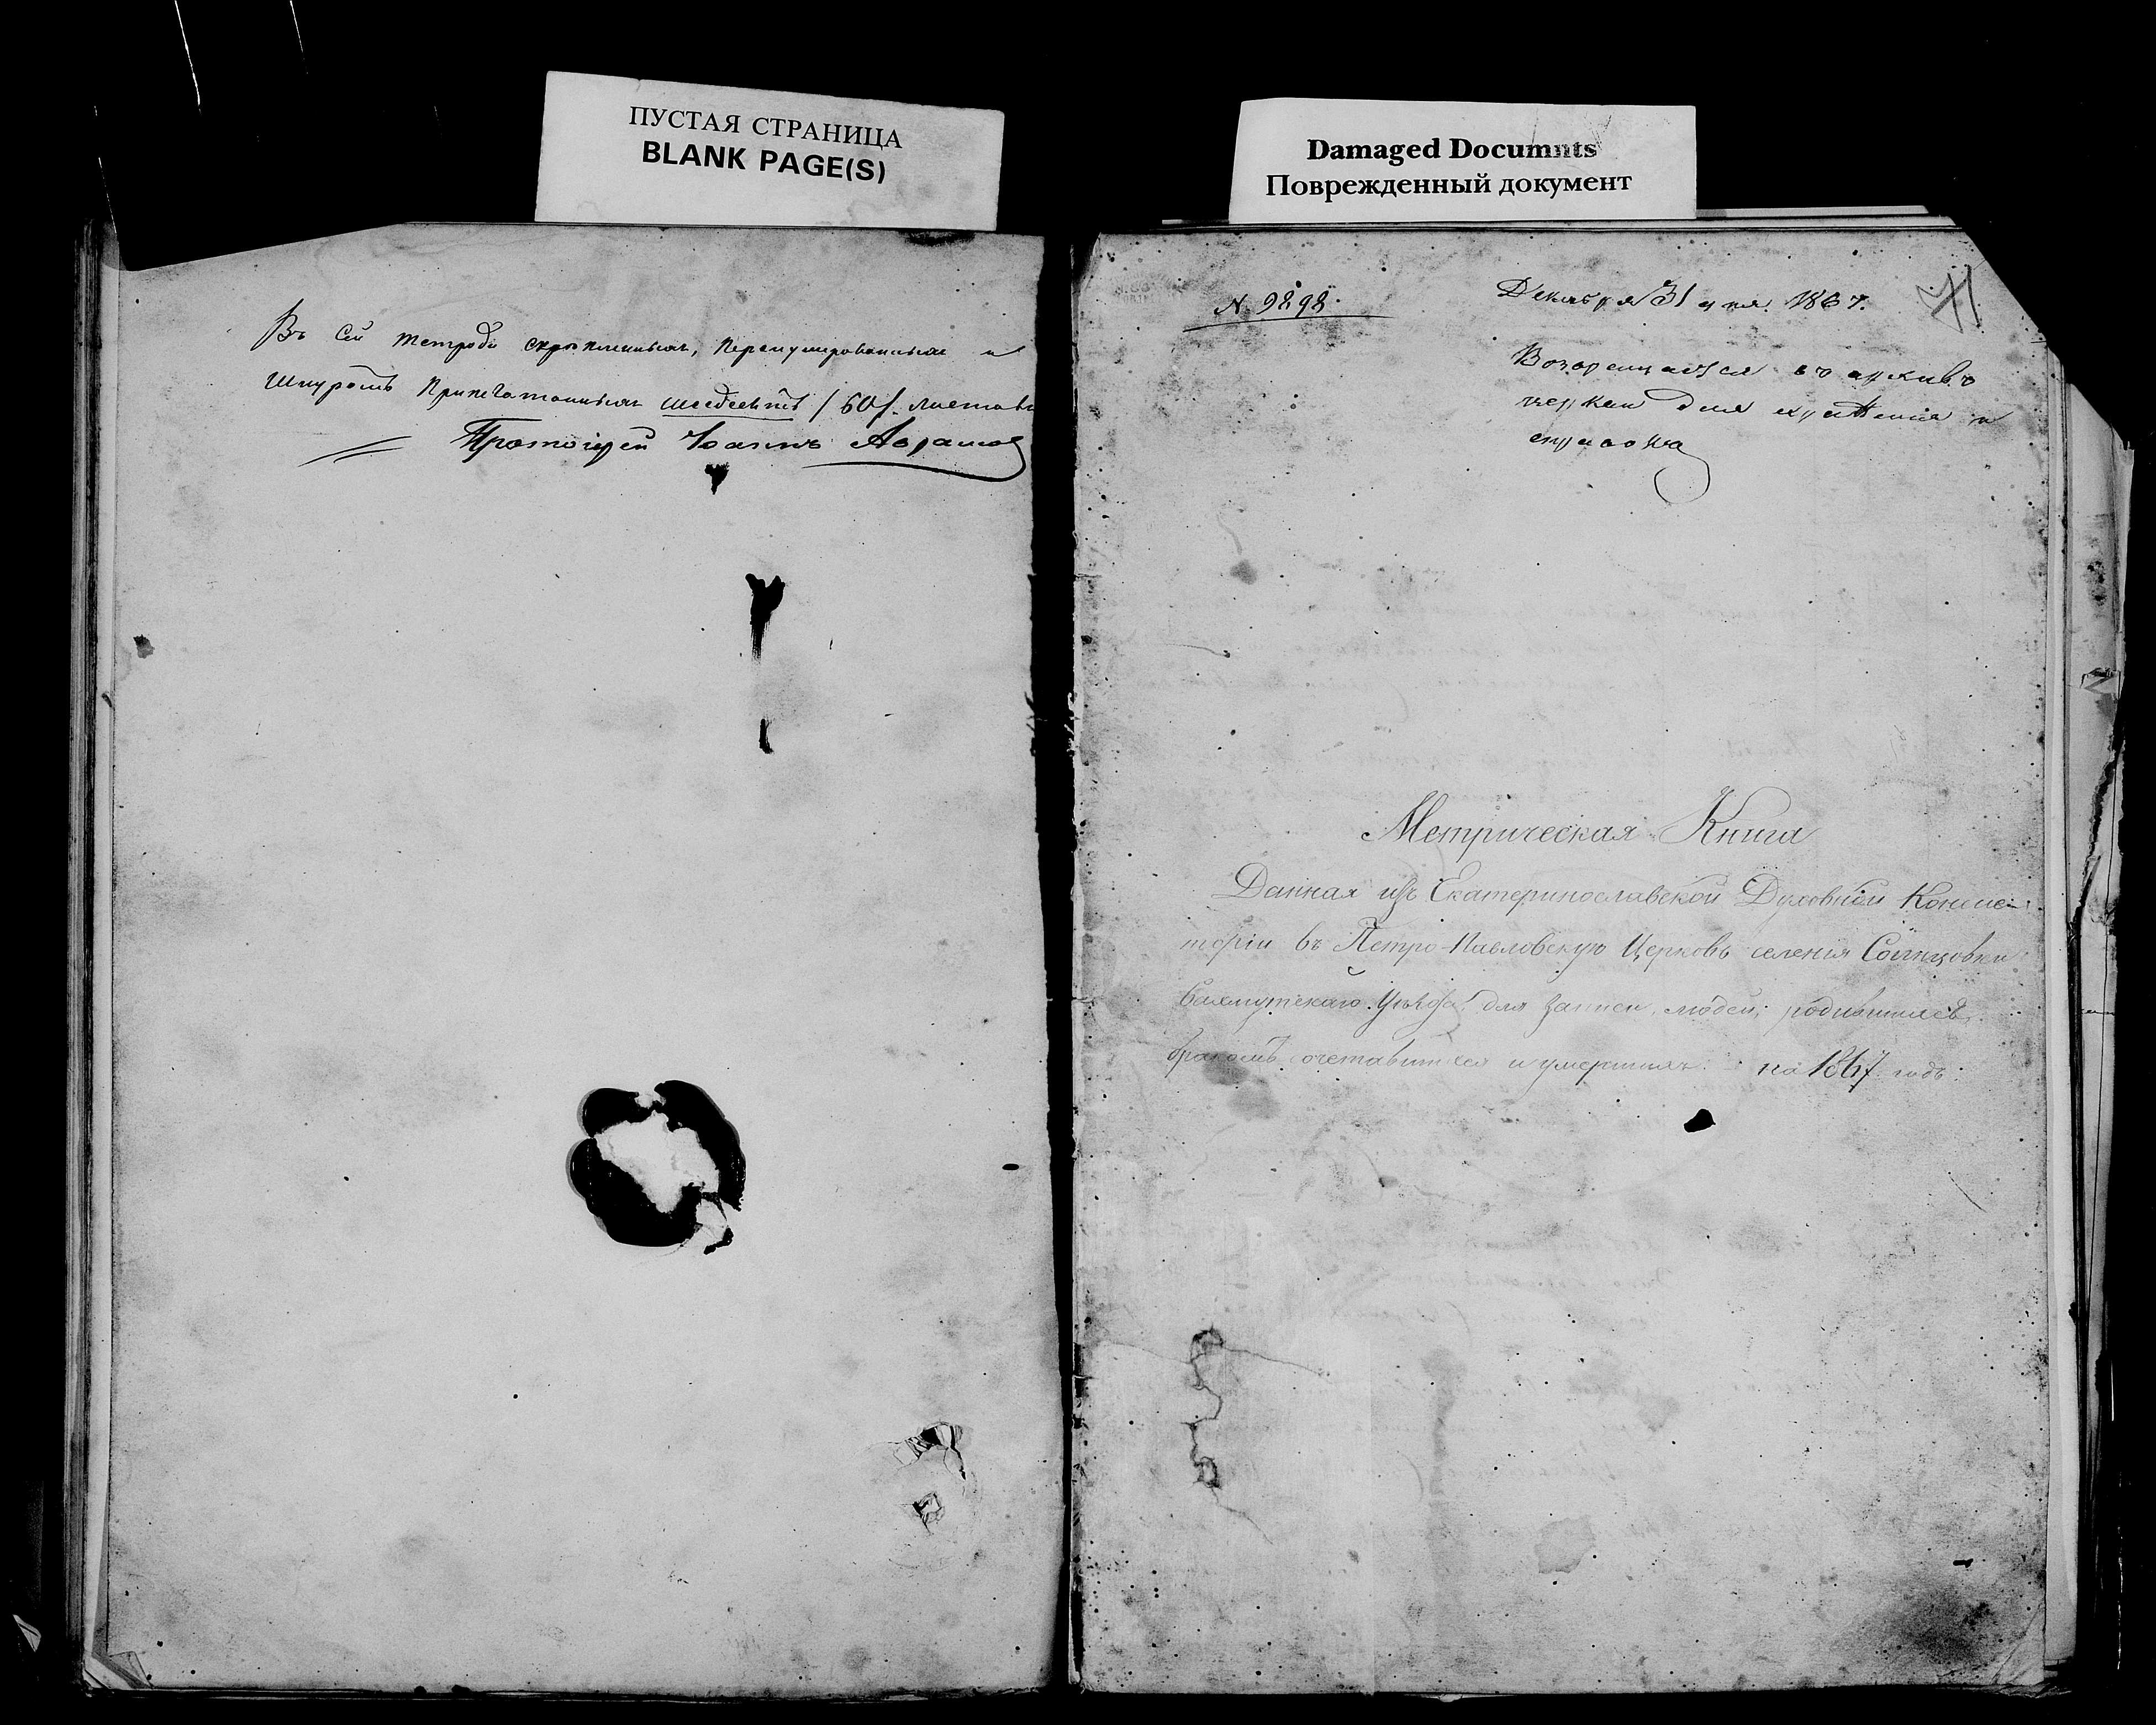 ПУСТАЯ СТРАНИЦА
BLANK PAGE(S)
Въ сей тетради скрепленныхъ, перенумерованныхъ и
Шнуромъ припечатанныхъ шесдесятъ /60/. листовъ
Протоіерей Іоаннъ Абрамов
Damaged Documnts
Поврежденный документ
N 9898.
Декабря 31 дня. 1867.
71
Возвращается въ архивъ
церкви для храненія и
справокъ
Метрическая Книга
Данная изъ Екатеринославской Духовной Консис-
торіи въ Петро-Павловскую Церковь селенія Солнцовки
Бахмутскаго Уѣзда, для записи, людей, родившихся,
бракомъ сочетавшихся и умершихъ. на 1867 годъ.